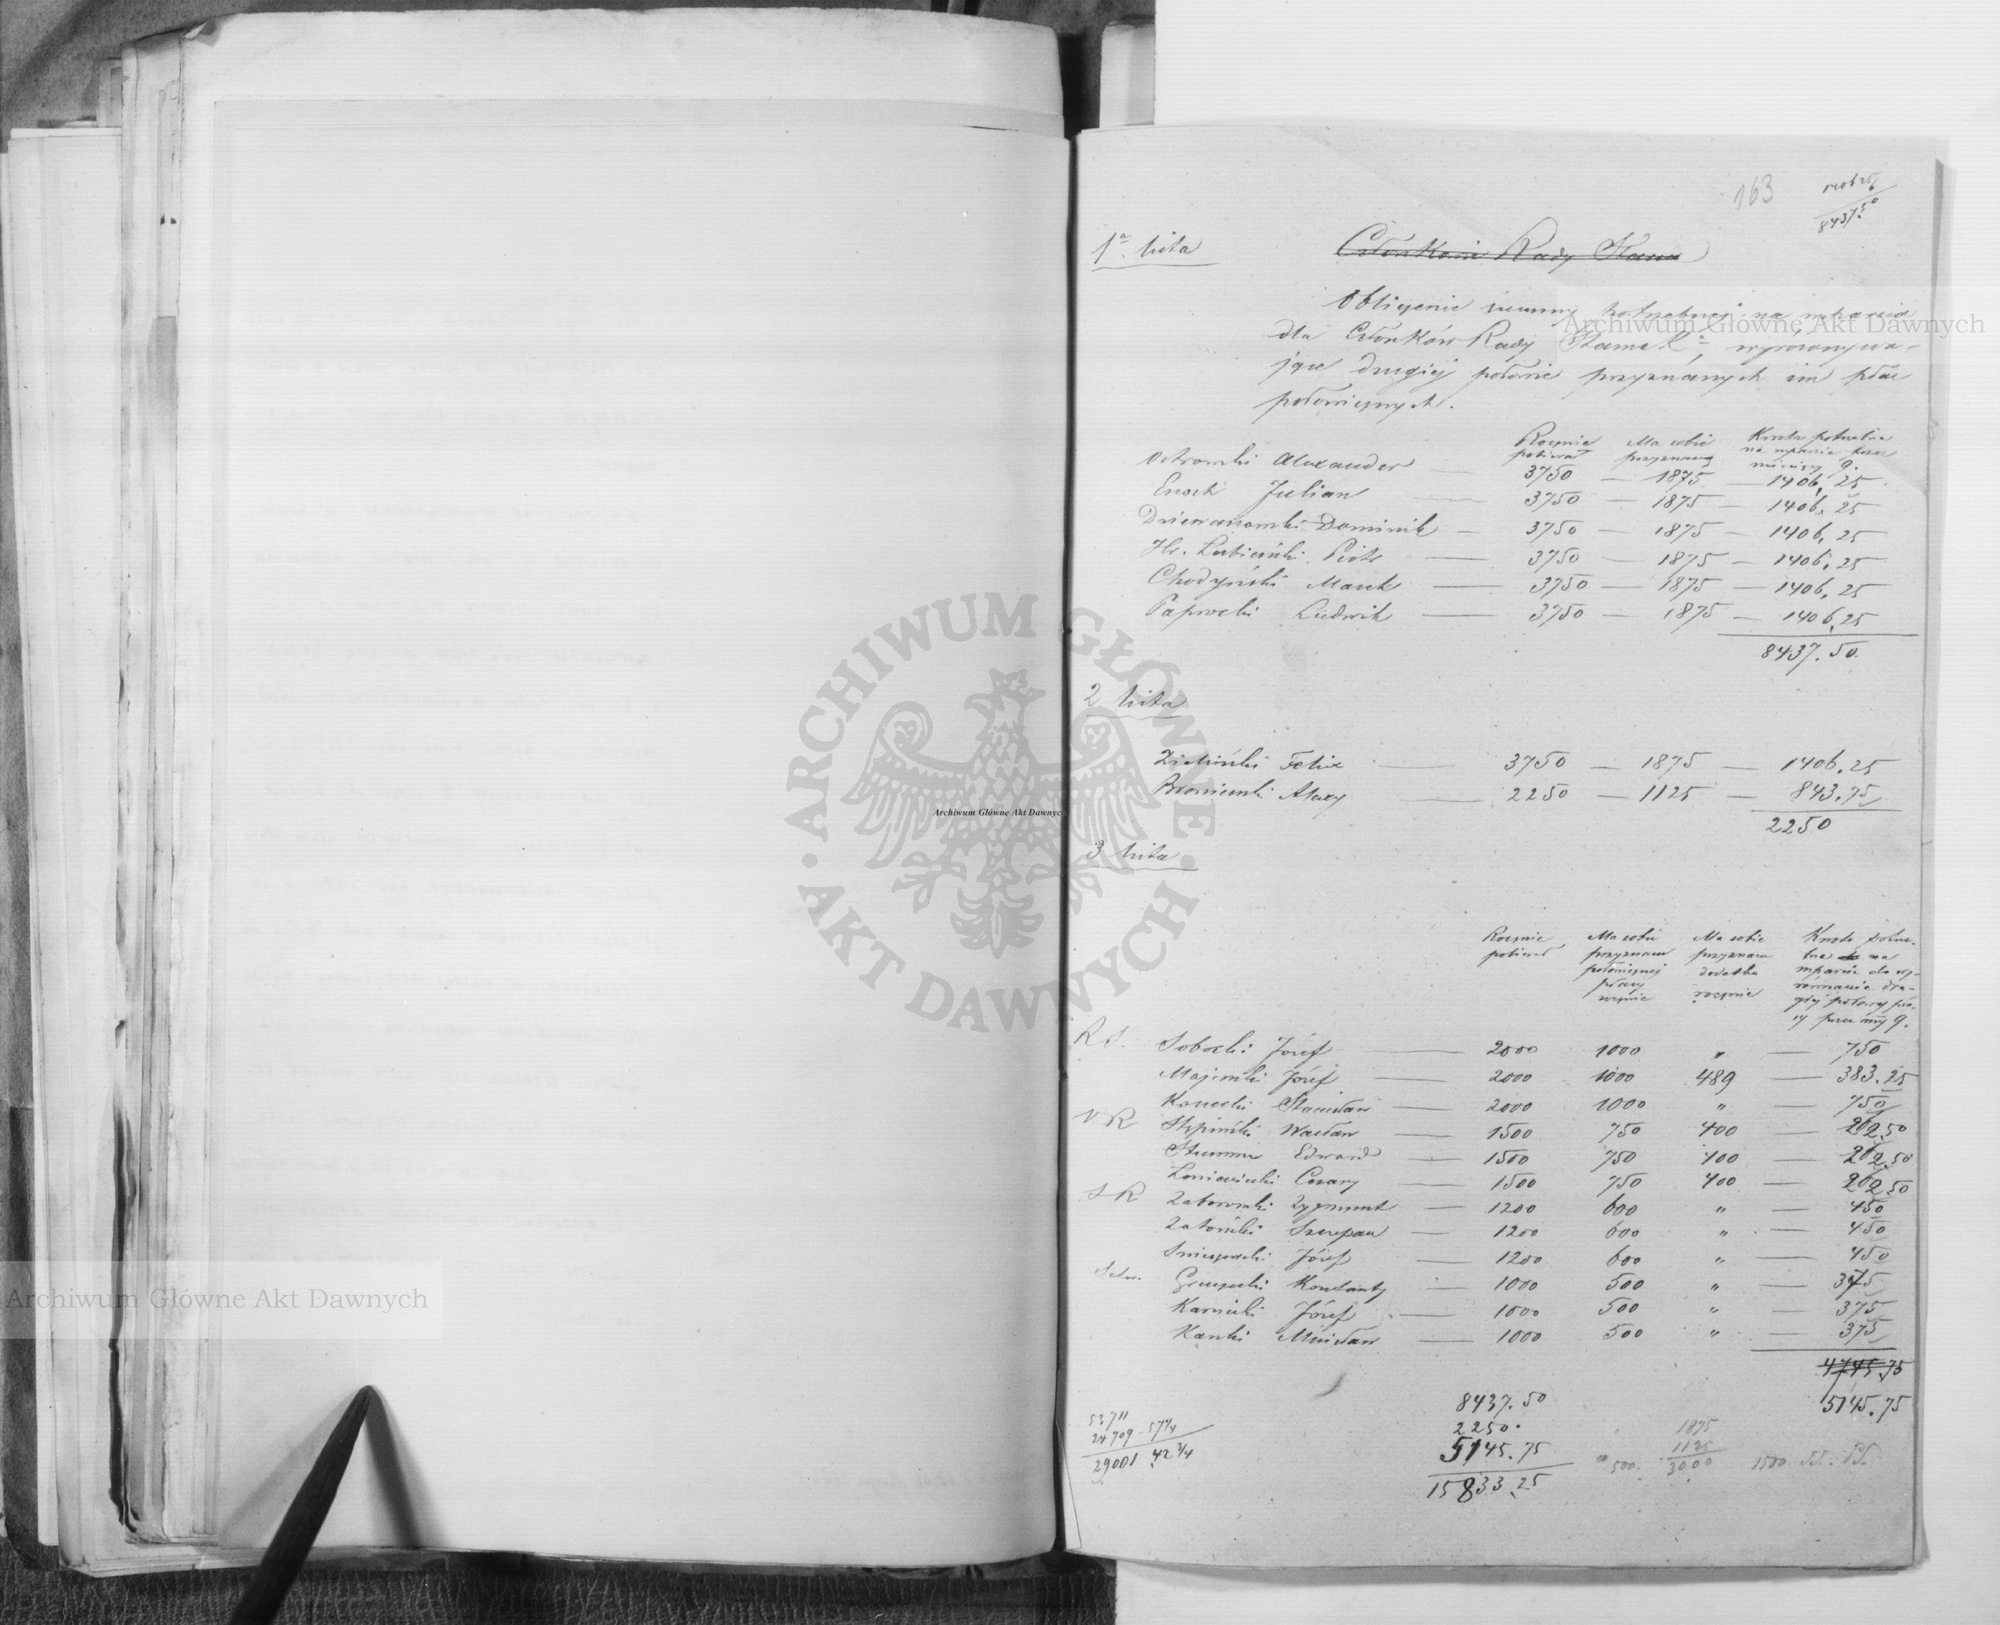 163
1406.25
6
8437.50
1a lista
Członkowie Rady Stanu
Obliczenie summy potrzebnej na wparcie
dla Członków Rady Stanu K., wyrównywa-
jące drugiej połowie przyznanych im płac
połowicznych.
Rocznie pobierał Ma sobie przyznaną Kwota potrzebna na wparcie przez miesięcy 9.
Ostrowski Alexander — 3750 — 1875 — 1406,25
Enoch Julian — 3750 — 1875 — 1406,25
Dziewanowski Dominik — 3750 — 1875 — 1406,25
Hr. Łubieński Piotr — 3750 — 1875 — 1406,25
Chodyński Marek — 3750 — 1875 — 1406,25
Paprocki Ludwik — 3750 — 1875 — 1406,25
8437.50
2 lista
Zieliński Felix — 3750 — 1875 — 1406.25
Broniewski Alexy — 2250 — 1125 — 843.75
2250
3 lista
Rocznie pobierał Ma sobie przyznane połowicznej płacy rocznie Ma sobie przyznane dodatku rocznie Kwota potrzebna na wparcie do wyrównania drugiej połowy płacy przez m-cy 9.
R S. Sobocki Józef — 2000 1000 „ — 750
Majewski Józef — 2000 1000 489 — 383.25
Konecki Stanisław — 2000 1000 „ — 750
N R Stępiński Wacław — 1500 750 400 — 262.50
Stummer Edward — 1500 750 400 — 262.50
Cezary — 1500 750 400 — 262.50
S R Zaborowski Zygmunt — 1200 600 „ — 450
Zatoński Szczepan — 1200 600 „ — 450
Józef — 1200 600 „ — 450
Konstanty — 1000 500 „ — 375
Karnicki Józef — 1000 500 „ — 375
Kański Mścisław — 1000 500 „ — 375
4745.75
5145.75
8437.50
2250.
5145.75
15833.25
53711
24709 57 1/4
29001 42 3/4
500.
1875
1125
3000
1500
Archiwum Główne Akt Dawnych
Archiwum Główne Akt Dawnych
Archiwum Główne Akt Dawnych
ARCHIWUM GŁÓWNE · AKT DAWNYCH ·